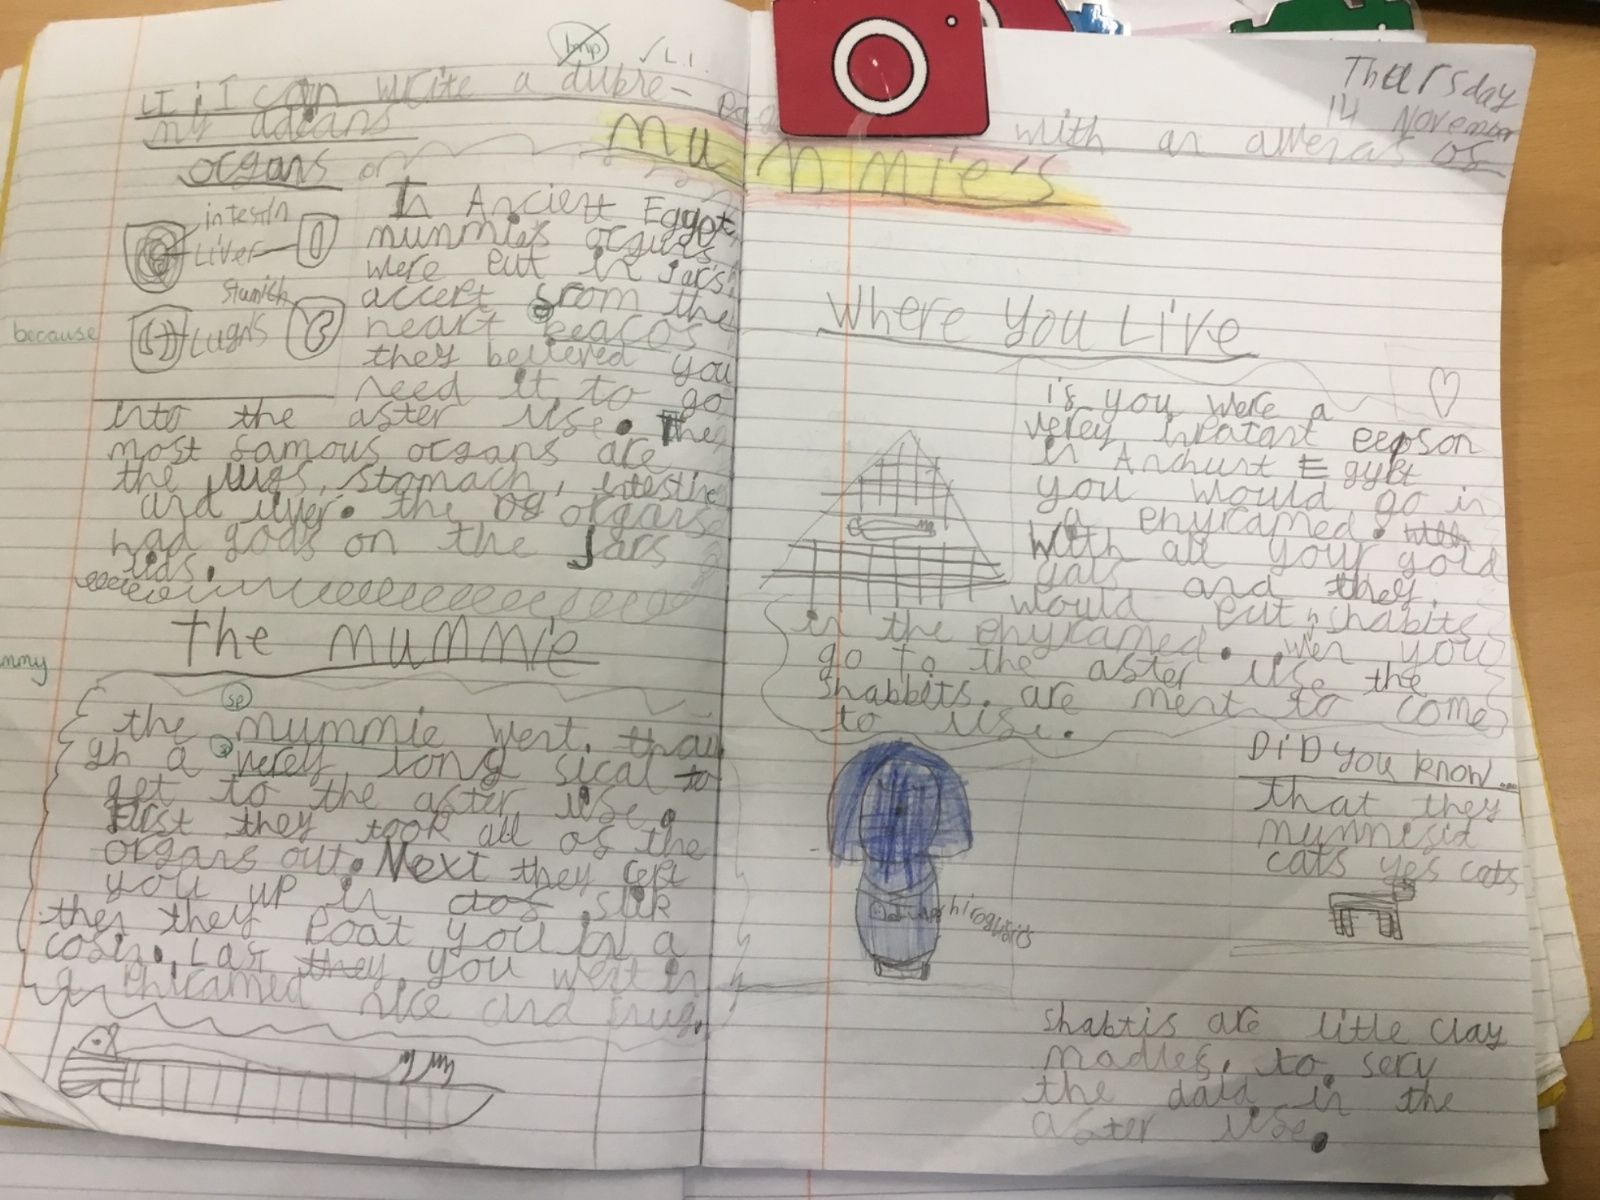 LI: I can write a duble-
with an awernas of
my adeans
Thursday
14 November
Mummie's
organs
intestin
Liver
stumich
Lughs
because
In Ancient Egypt
mummies orguns
were put in jar's
accept from the
heart beacos
they beleved you
need it to go
into the after life. The
most famous organs are
the lugs, stomach, intestine
and liver. the organs
had gods on the Jars
lids.
The mummie
mmy
sp
the mummie went thau
gh a verey long sical to
get to the after life.
First they took all of the
organs out. Next they rept
you up in silk
then they poat you in a
cofin. Last they you went in
a phiramed nice and snug.
Where You Live
if you were a
verey inpatant peopson
in Anchunt Egypt
you would go in
a phyramed. with
With all your gold
gats and they
would put shabits
in the phyramed. wen you
go to the after life the
shabbits are ment to come
to life.
hirogluhis
DiD you know...
that they
mummifid
cats yes cats
Shabtis are little clay
madles, to serv
the daid in the
after life.